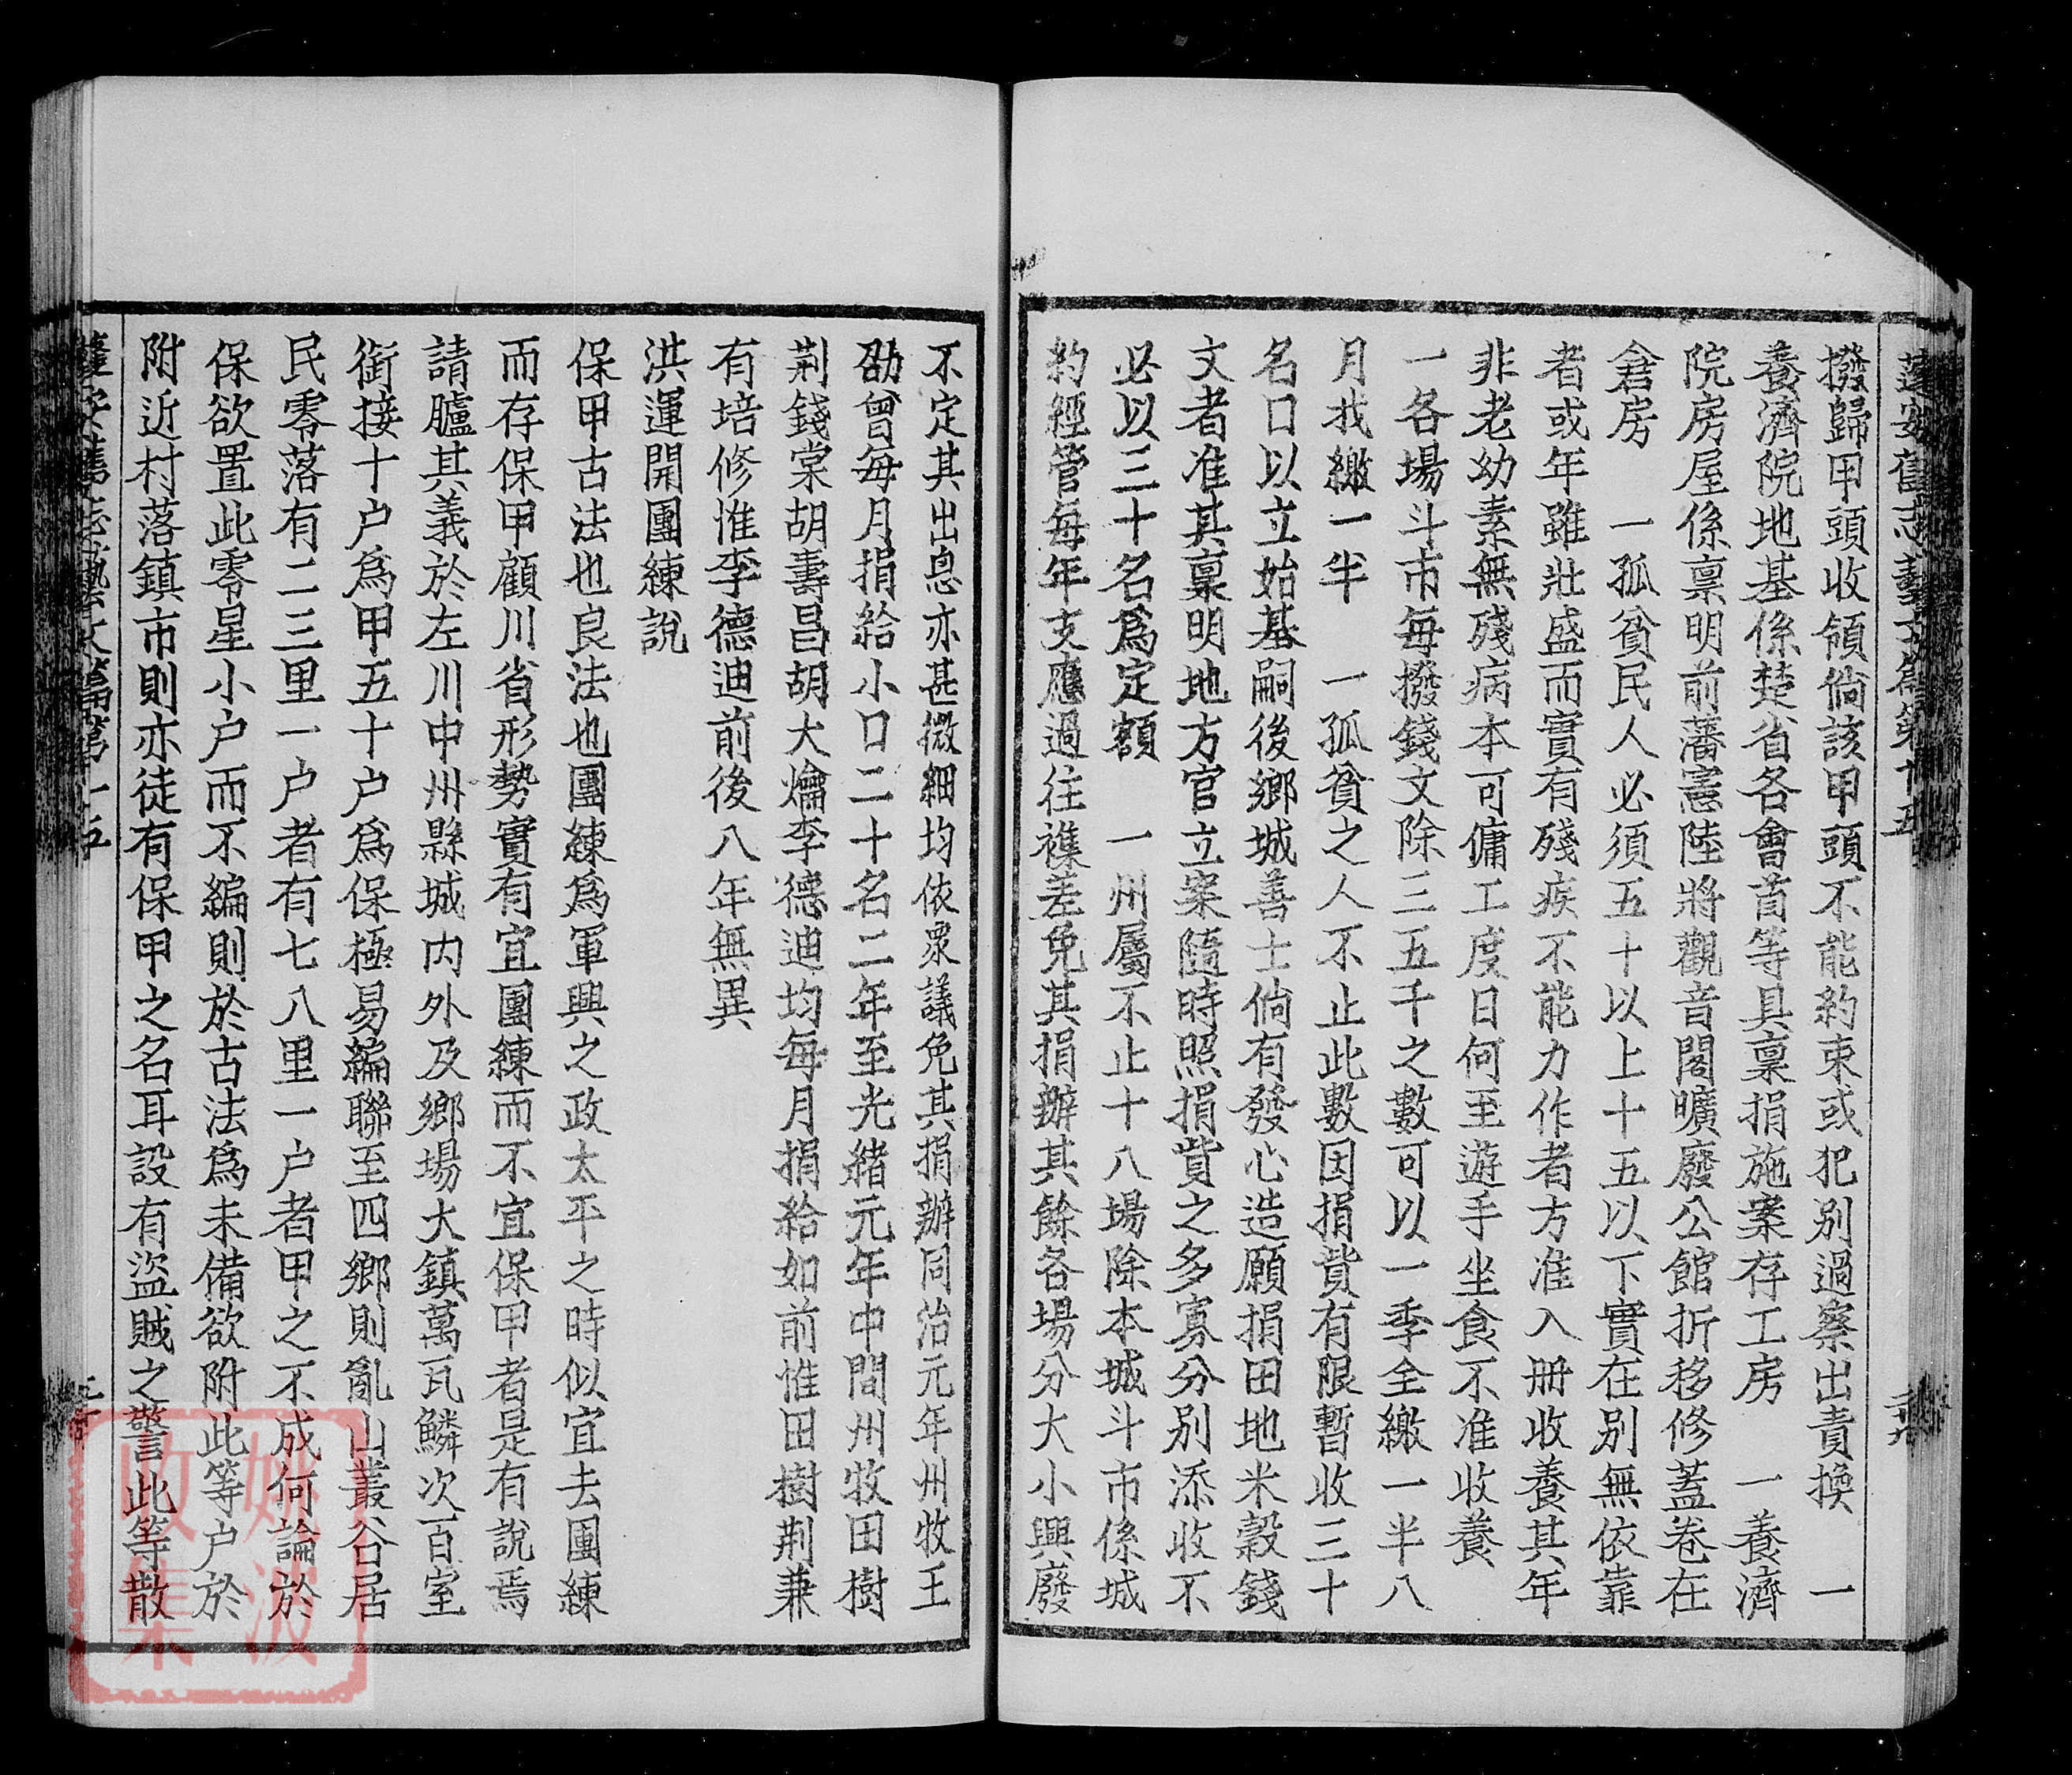 蓬安舊志藝文篇第十五
撥歸甲頭收領倘該甲頭不能約束或犯别過察出責換　一
養濟院地基係楚省各會首等具稟捐施案存工房　一養濟
院房屋係稟明前藩憲陸將觀音閣曠廢公館折移修蓋卷在
倉房　一孤貧民人必須五十以上十五以下實在别無依靠
者或年雖壯盛而實有殘疾不能力作者方准入册收養其年
非老幼素無殘病本可傭工度日何至遊手坐食不准收養
一各場斗市每撥錢文除三五千之數可以一季全繳一半八
月找繳一半　一孤貧之人不止此數因捐貲有限暫收三十
名口以立始基嗣後鄉城善士倘有發心造願捐田地米穀錢
文者准其稟明地方官立案隨時照捐貲之多寡分别添收不
必以三十名爲定額　一州屬不止十八場除本城斗市係城
約經管每年支應過往襍差免其捐辦其餘各場分大小興廢
不定其出息亦甚微細均依衆議免其捐辦同治元年州牧王
劭曾每月捐給小口二十名二年至光緒元年中間州牧田樹
荆錢棠胡壽昌胡大爚李德迪均每月捐給如前惟田樹荆兼
有培修惟李德迪前後八年無異
洪運開團練說
保甲古法也良法也團練爲軍興之政太平之時似宜去團練
而存保甲顧川省形勢實有宜團練而不宜保甲者是有說焉
請臚其義於左川中州縣城内外及鄉場大鎮萬瓦鱗次百室
銜接十户爲甲五十户爲保極易編聯至四鄉則亂山叢谷居
民零落有二三里一户者有七八里一户者甲之不成何論於
保欲置此零星小户而不編則於古法爲未備欲附此等户於
附近村落鎮市則亦徒有保甲之名耳設有盜賊之警此等散
蓬安舊志藝文篇第十五
姚波
收集